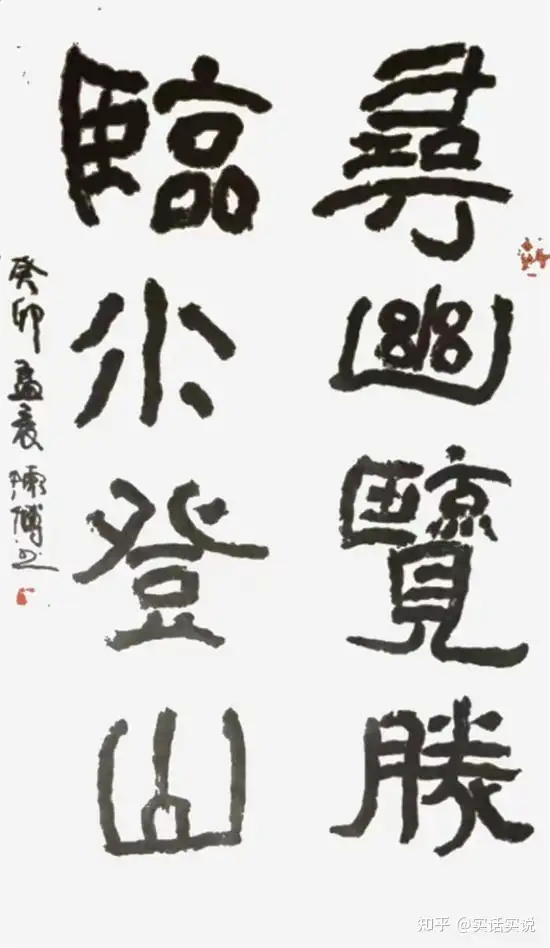 尋幽覽勝
臨水登山
癸卯孟夏陳
知乎 @实话实说